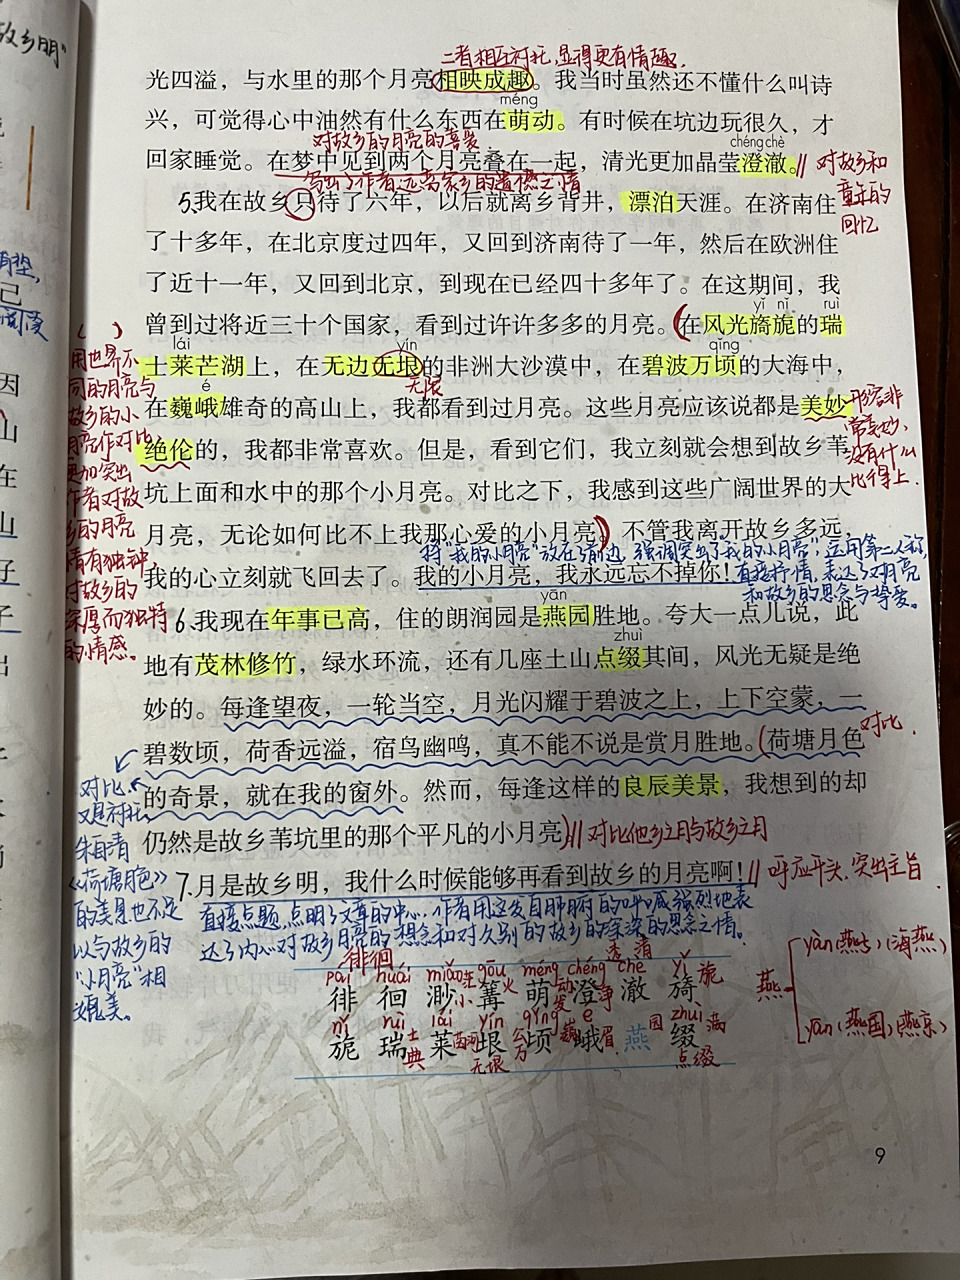 故乡明”
二者相互衬托,显得更有情趣.
光四溢，与水里的那个月亮相映成趣。我当时虽然还不懂什么叫诗
méng
兴，可觉得心中油然有什么东西在萌动。有时候在坑边玩很久，才
对故乡的月亮的喜爱
chéng chè
回家睡觉。在梦中见到两个月亮叠在一起，清光更加晶莹澄澈。
写出了作者远离家乡的遗憾之情
对故乡和
童年的
回忆
5、我在故乡只待了六年，以后就离乡背井，漂泊天涯。在济南住
了十多年，在北京度过四年，又回到济南待了一年，然后在欧洲住
了近十一年，又回到北京，到现在已经四十多年了。在这期间，我
yǐ nǐ ruì
曾到过将近三十个国家，看到过许许多多的月亮。在风光旖旎的瑞
lái yín qǐng
士莱芒湖上，在无边无垠的非洲大沙漠中，在碧波万顷的大海中，
无限
é
在巍峨雄奇的高山上，我都看到过月亮。这些月亮应该说都是美妙
绝伦的，我都非常喜欢。但是，看到它们，我立刻就会想到故乡苇
形容非
常美妙,
没有什么
比得上.
坑上面和水中的那个小月亮。对比之下，我感到这些广阔世界的大
月亮，无论如何比不上我那心爱的小月亮。不管我离开故乡多远，
将“我的小月亮”放在前边,强调突出了“我的小月亮”;运用第二人称,
我的心立刻就飞回去了。我的小月亮，我永远忘不掉你！
直接抒情,表达了对月亮
和故乡的思念与挚爱。
( )
用世界不
同的月亮与
故乡的小
月亮作对比
更加突出
作者对故
乡的月亮
情有独钟,
对故乡的
深厚而独特
的情感。
yān
6、我现在年事已高，住的朗润园是燕园胜地。夸大一点儿说，此
zhuì
地有茂林修竹，绿水环流，还有几座土山点缀其间，风光无疑是绝
妙的。每逢望夜，一轮当空，月光闪耀于碧波之上，上下空蒙，一
碧数顷，荷香远溢，宿鸟幽鸣，真不能不说是赏月胜地。荷塘月色
对比.
的奇景，就在我的窗外。然而，每逢这样的良辰美景，我想到的却
仍然是故乡苇坑里的那个平凡的小月亮。
对比他乡之月与故乡之月
对比、
又是衬托
朱自清
《荷塘月色》
的美景也不足
以与故乡的
“小月亮”相
媲美。
7、月是故乡明，我什么时候能够再看到故乡的月亮啊！
呼应开头、突出主旨
直接点题,点明了文章的中心,作者用这发自肺腑的呼喊强烈地表
达了内心对故乡月亮的想念和对久别的故乡的深深的思念之情。
徘徊 透 清
pái huái miǎo gōu méng chéng chè yǐ
徘 徊 渺 篝 萌 澄 澈 旖 旎
nǐ ruì lái yín qǐng é zhuì
旎 瑞 莱 垠 顷 峨 燕 缀
无垠 点缀
燕 yàn(燕子)(海燕)
yān(燕国)(燕京)
9